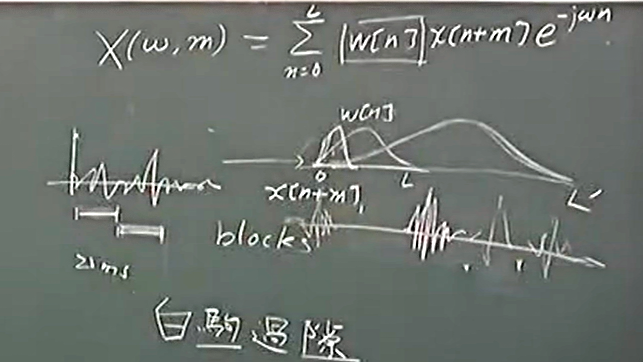 X(ω,m) = Σ_{n=0}^{L} |w[n]|x[n+m]e^{-jωn}
w[n]
0 L L'
x[n+m]
blocks
25ms
白駒過隙